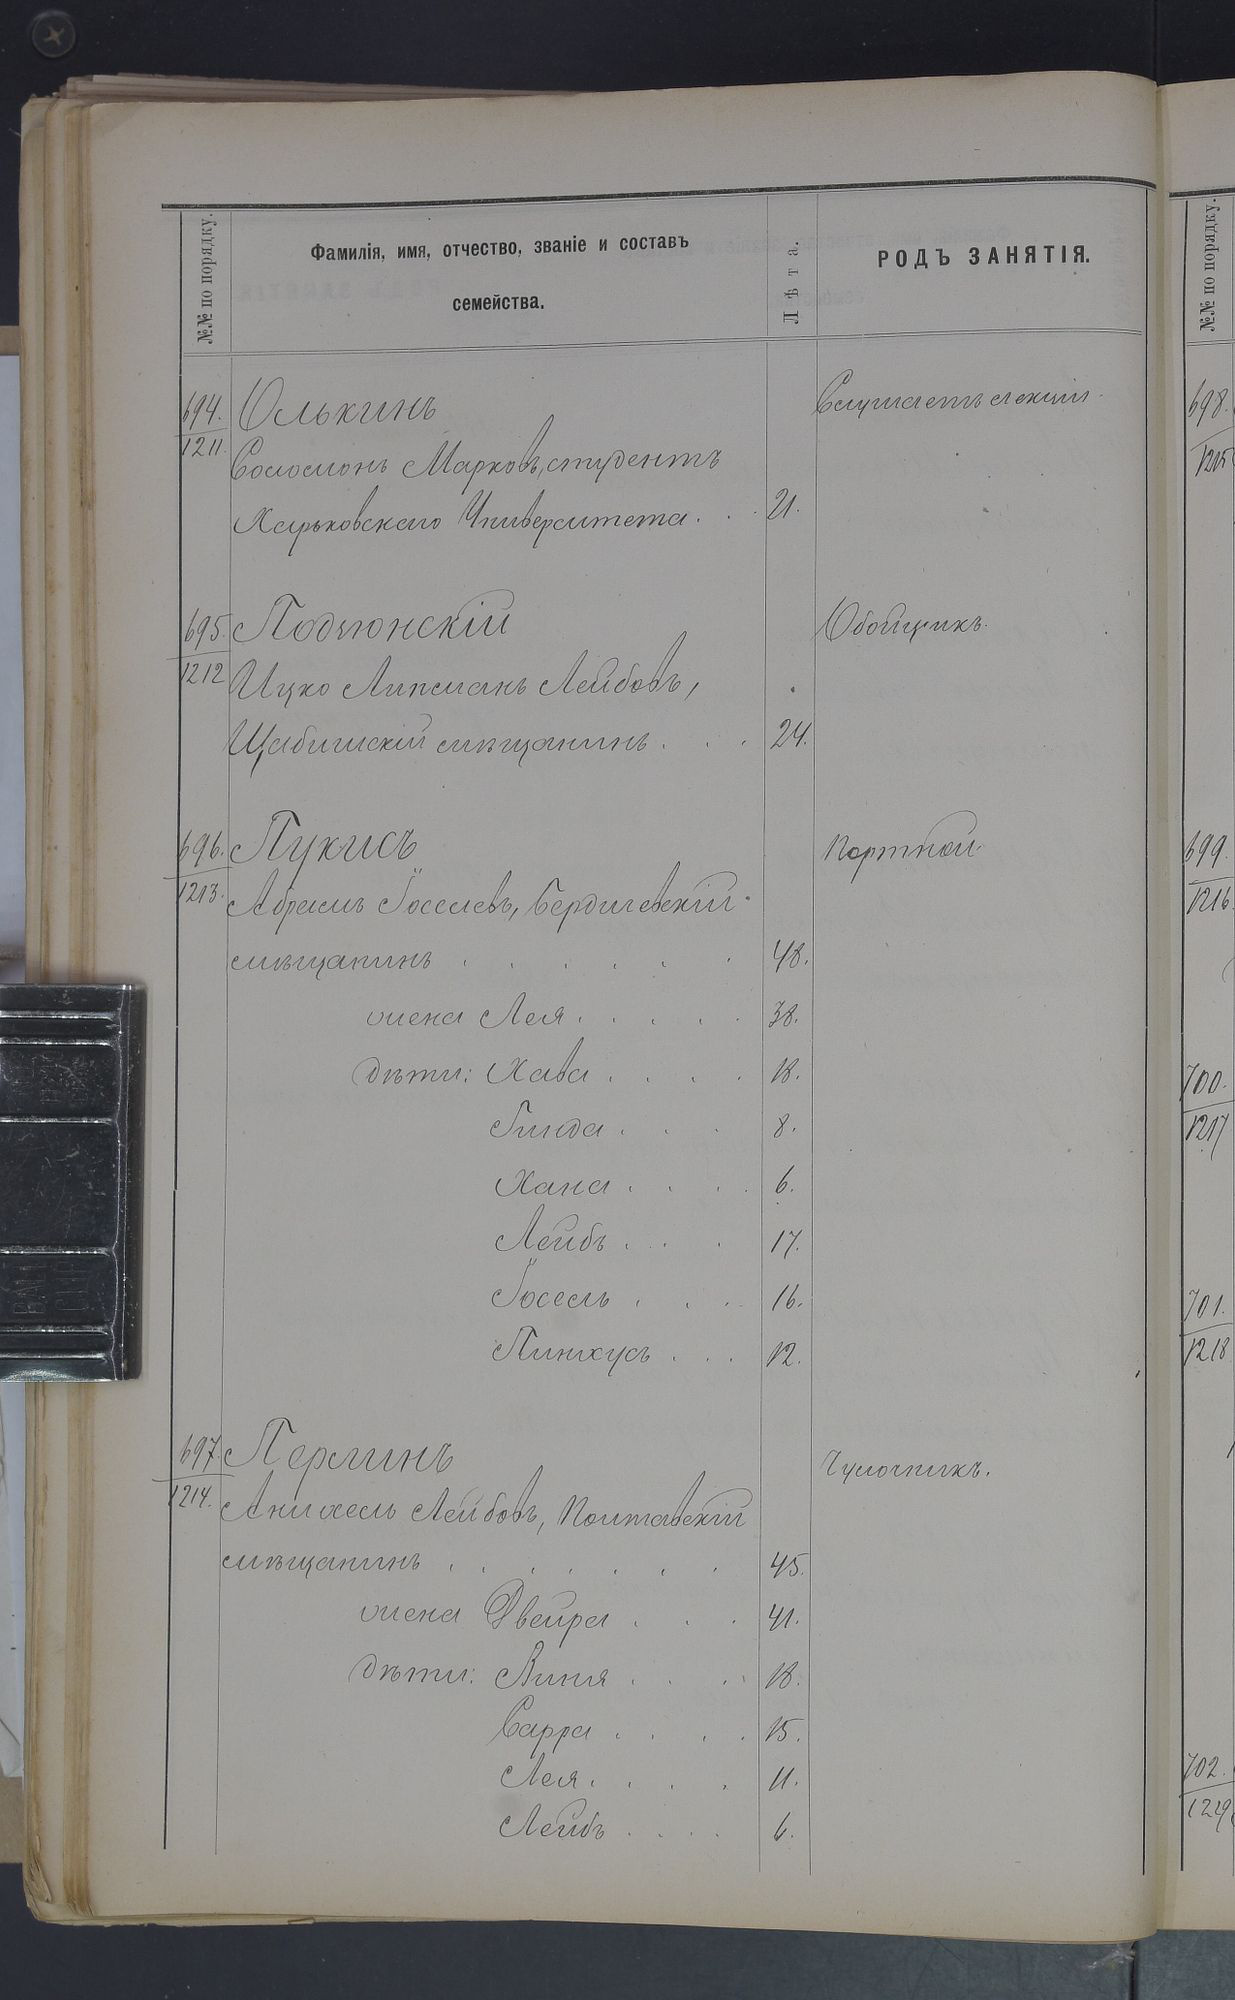 №№ по порядку.
Фамилія, имя, отчество, званіе и составъ
семейства.
Лѣта.
РОДЪ ЗАНЯТІЯ.
694. Олькинъ Слушаетъ лекціи.
1211. Соломонъ Марковъ, студентъ
Харьковскаго Университета. . . 21.
695. Обойщикъ.
1212 Ицко Липманъ Лейбовъ,
мѣщанинъ. . . 24.
696. Пукисъ Портной.
1213. Абрамъ Іоселевъ, Бердичевскій
мѣщанинъ . . . . . . 48.
жена Лея . . . . . 38.
дѣти: Хава . . . . 18.
Гинда . . . 8.
Хана . . . . 6.
Лейбъ . . . 17.
Іосель . . . . 16.
Пинхусъ . . . 12.
697. Перлинъ Чулочникъ.
1214. Лейбовъ, Полтавскій
мѣщанинъ . . . . . . . 45.
жена Двейра . . . 41.
дѣти: . . . 18.
Сарра . . . . 15.
Лея . . . . 11.
Лейбъ . . . . 6.
№№ по порядку.
698.
1215
699.
1216.
700.
1217
701.
1218
702.
1219